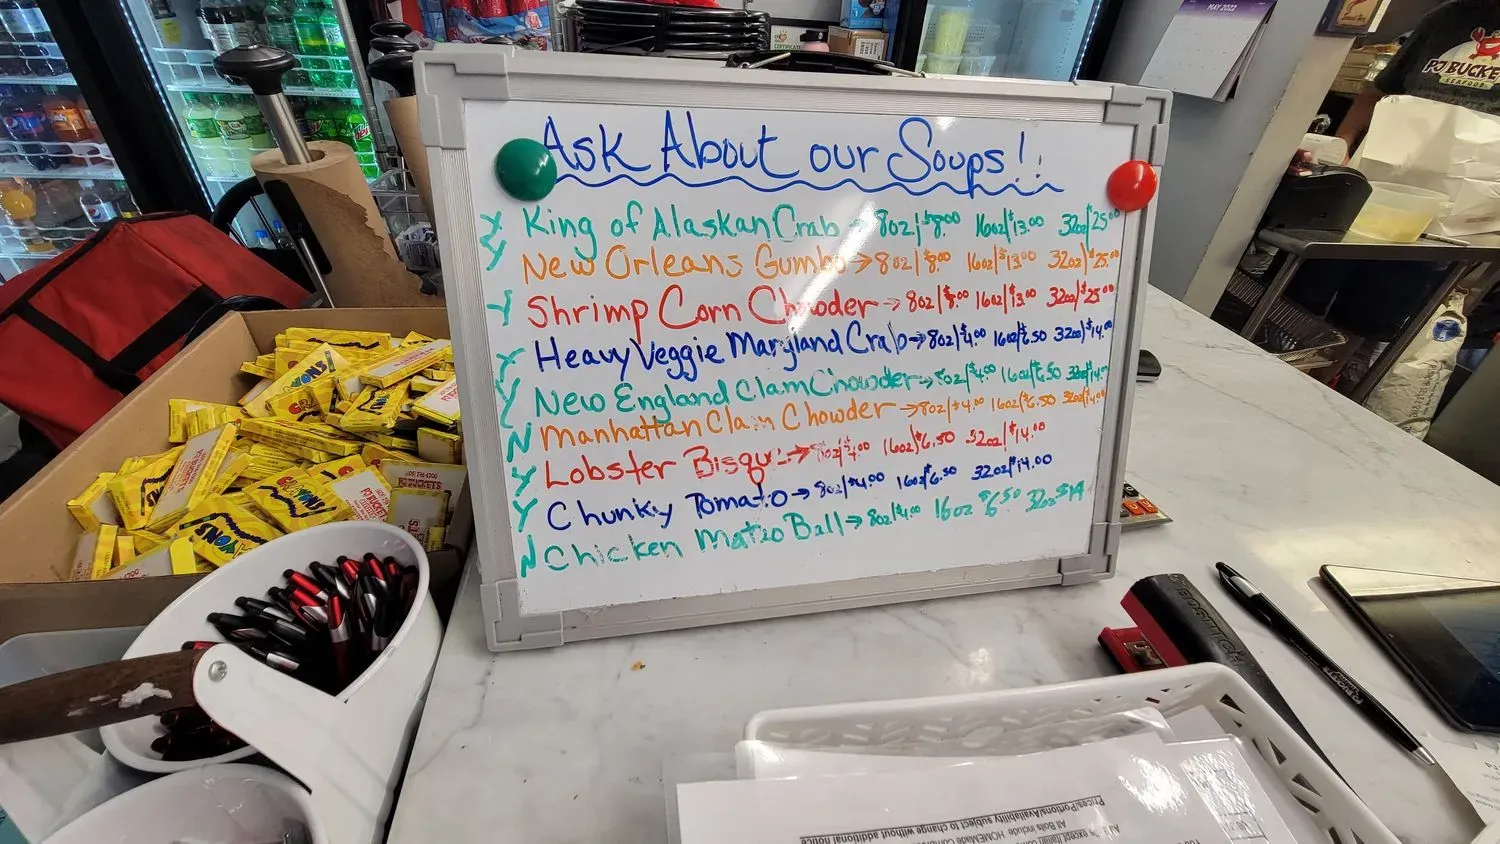 MAY 2022
PJ BUCKETS
SEAFOOD
CERTIFICATE
Ask About our Soups!!
Y King of Alaskan Crab → 8oz/$8.00 16oz/$13.00 32oz/$25.00
Y New Orleans Gumbo → 8oz/$8.00 16oz/$13.00 32oz/$25.00
Y Shrimp Corn Chowder → 8oz/$8.00 16oz/$13.00 32oz/$25.00
Y Heavy Veggie Maryland Crab → 8oz/$4.00 16oz/$6.50 32oz/$14.00
Y New England Clam Chowder → 8oz/$4.00 16oz/$6.50 32oz/$14.00
N Manhattan Clam Chowder → 8oz/$4.00 16oz/$6.50 32oz/$14.00
Y Lobster Bisque → 8oz/$4.00 16oz/$6.50 32oz/$14.00
Y Chunky Tomato → 8oz/$4.00 16oz/$6.50 32oz/$14.00
N Chicken Matzo Ball → 8oz/$4.00 16oz $6.50 32oz $14
CRAYONS
PJ BUCKETS
BOSTITCH
Prices/Portions/Availability subject to change without additional notice
All Boils include: HOMEMade